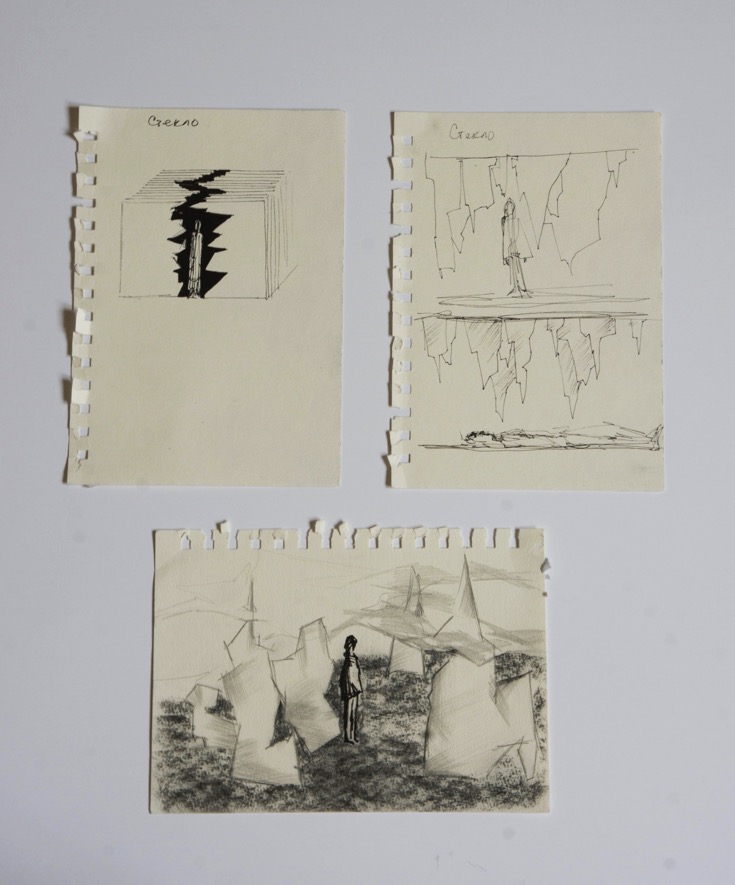 Стекло
Стекло